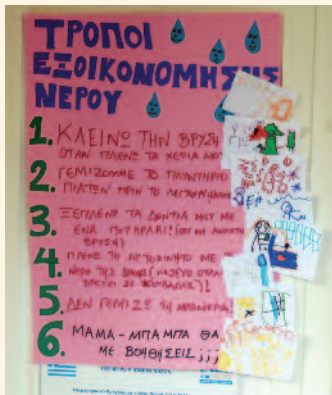 ΤΡΟΠΟΙ
ΕΞΟΙΚΟΝΟΜΗΣΗΣ
ΝΕΡΟΥ
1. ΚΛΕΙΝΩ ΤΗΝ ΒΡΥΣΗ
ΟΤΑΝ ΠΛΕΝΩ ΤΑ ΧΕΡΙΑ ΜΟΥ
2. ΓΕΜΙΖΟΥΜΕ ΤΟ ΠΛΥΝΤΗΡΙΟ
ΠΙΑΤΩΝ ΠΡΙΝ ΤΟ
3. ΞΕΠΛΕΝΩ ΤΑ ΔΟΝΤΙΑ ΜΟΥ ΜΕ
ΕΝΑ ΠΟΤΗΡΑΚΙ! (ΟΧΙ ΜΕ ΑΝΟΙΧΤΗ
ΒΡΥΣΗ)
4. ΠΛΕΝΩ ΤΟ ΑΥΤΟΚΙΝΗΤΟ ΜΕ
ΝΕΡΟ ΤΗΣ ΒΡΟΧΗΣ (ΜΑΖΕΥΩ ΟΤΑΝ
ΒΡΕΧΕΙ ΣΕ ΚΟΥΒΑΔΕΣ)!
5. ΔΕΝ ΓΕΜΙΖΩ ΤΗ ΜΠΑΝΙΕΡΑ!
6. ΜΑΜΑ - ΜΠΑΜΠΑ ΘΑ
ΜΕ ΒΟΗΘΗΣΕΙΣ ;;;